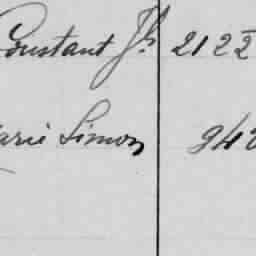 Constant Jh 2122
arie Simon 94